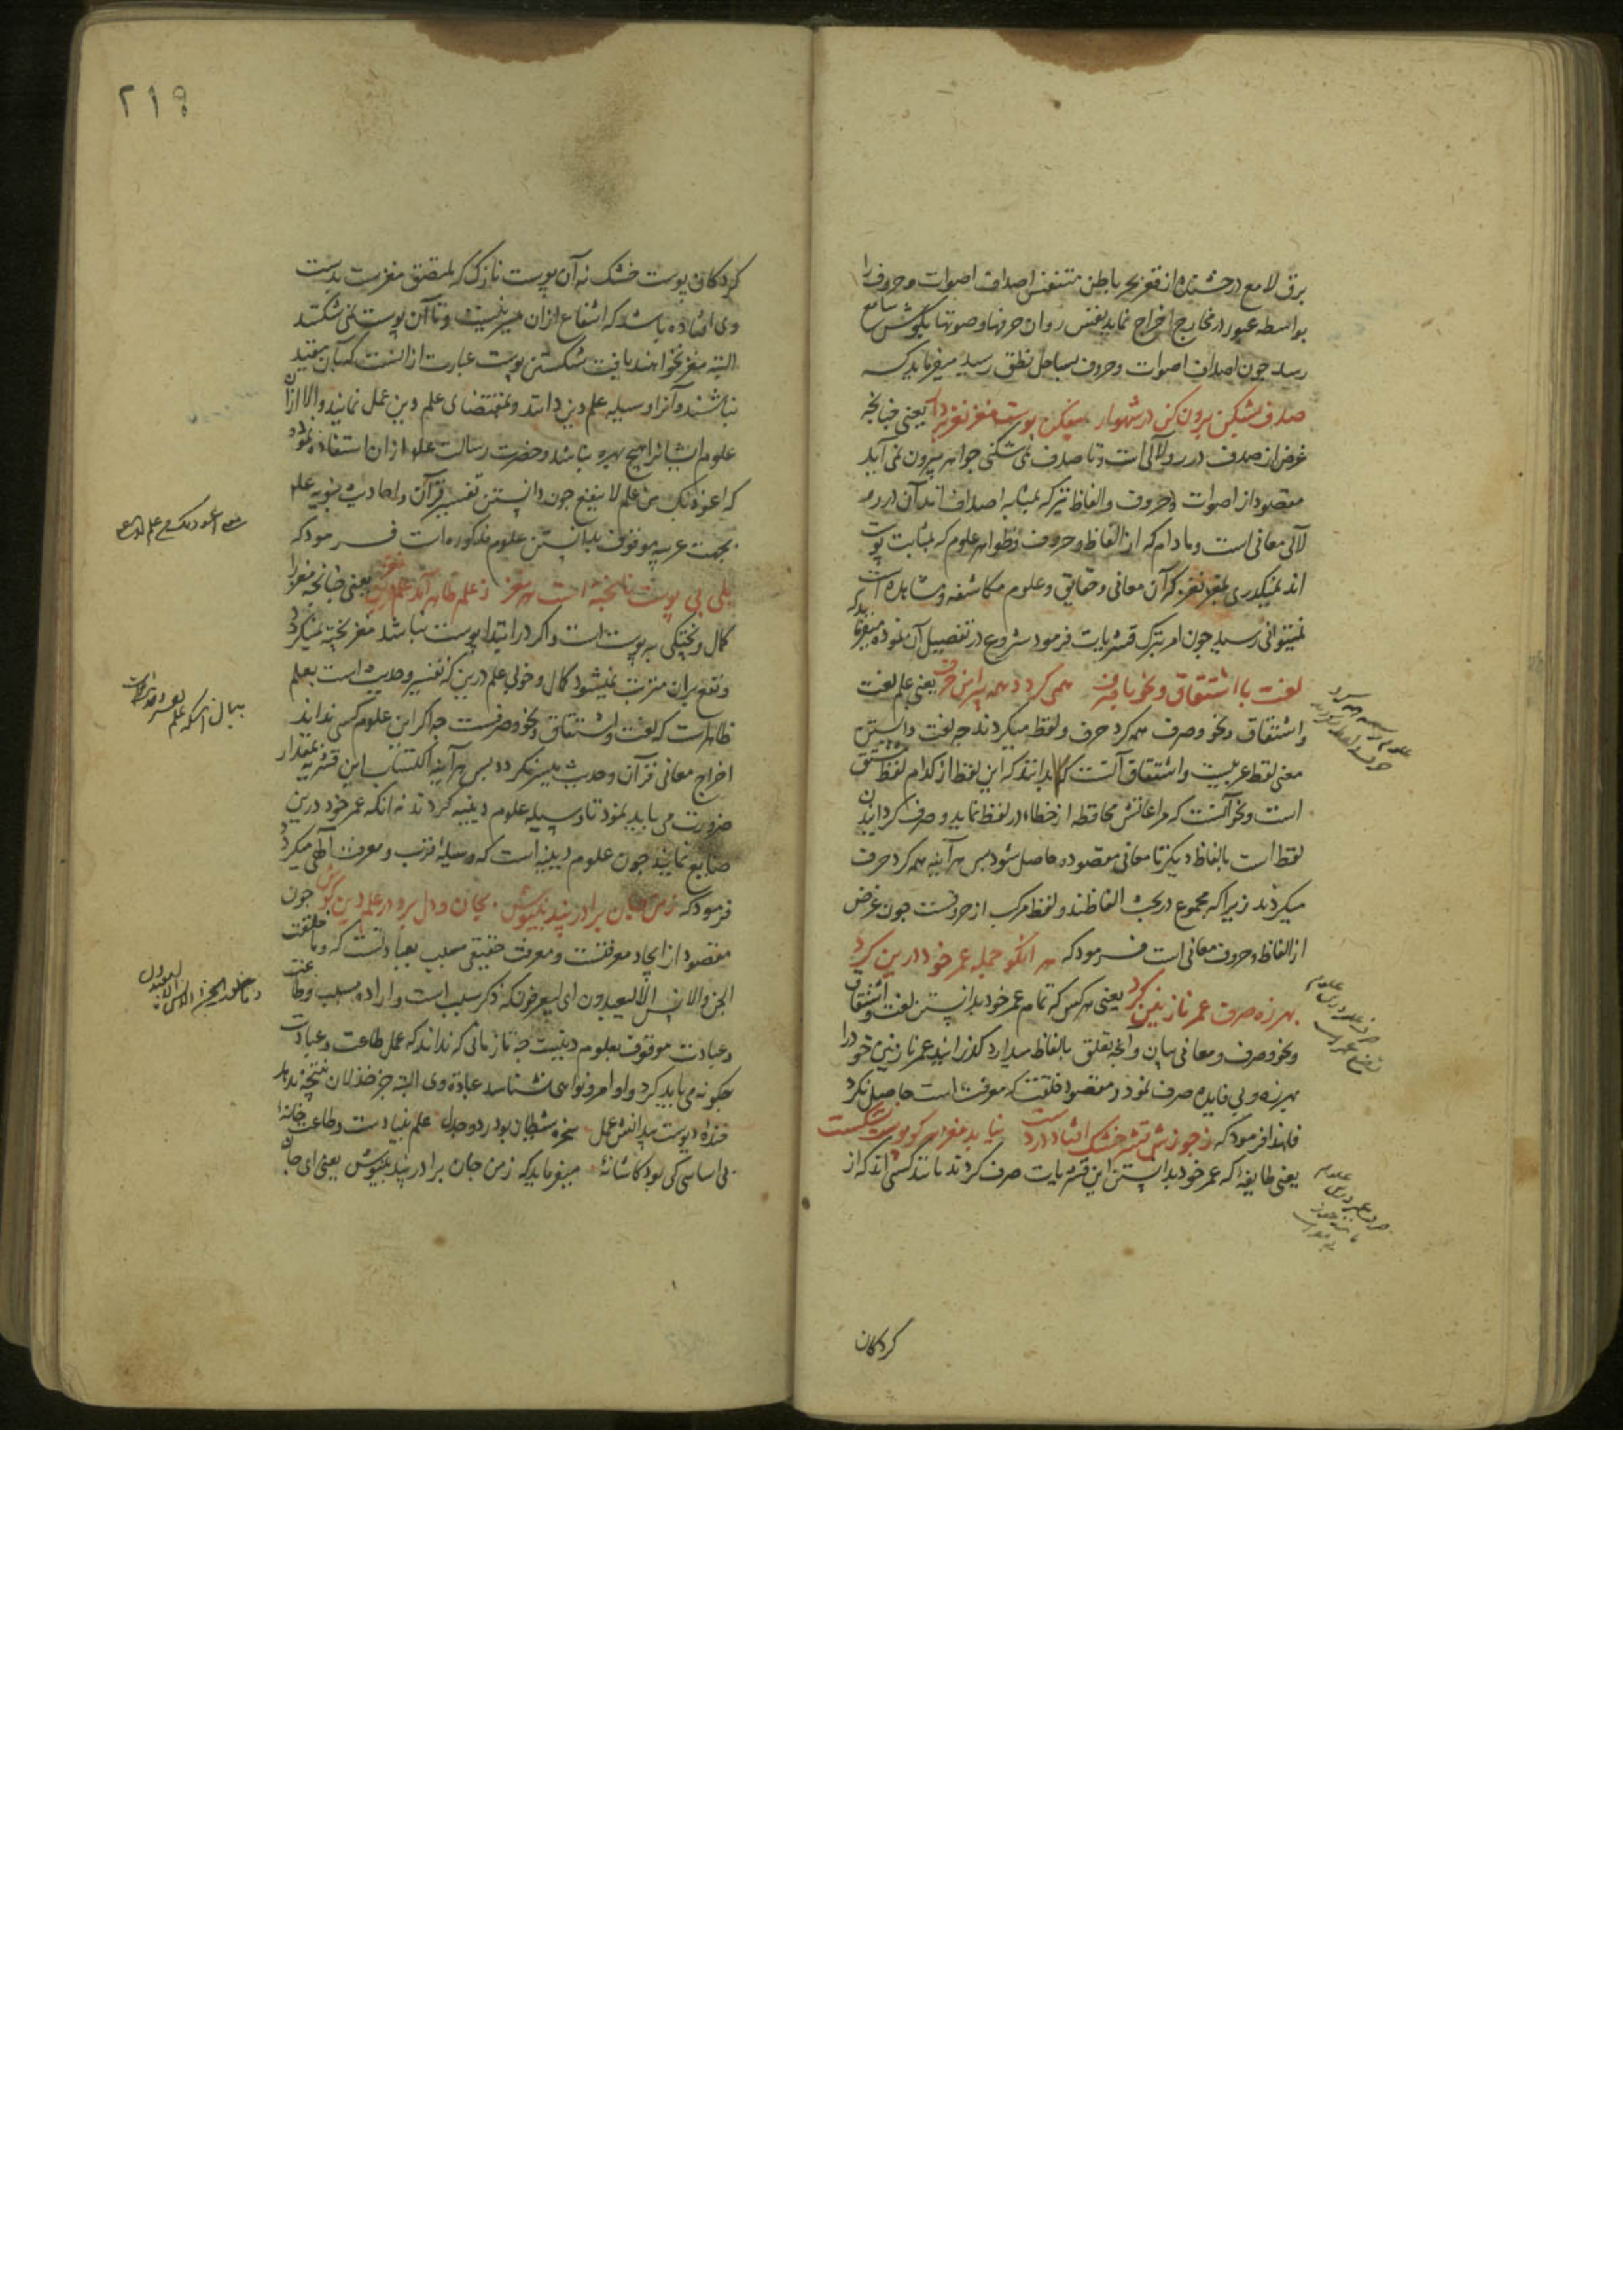 برق لامع درخشنده از قعر بحر باطن متنفس اصداف اصوات و حروف را
بواسطه عبور در مخارج اخراج نماید یعنی روان حرفها و صوتها بگوش سامع
رسد چون اصداف اصوات و حروف بساحل نطق رسید میفرماید که
صدف بشکن برون کن در شهوار بیفکن پوست مغز نغز بردار یعنی چنانچه
غرض از صدف درر و لآلی است و تا صدف نمی شکنی جواهر بیرون نمی آید
مقصود از اصوات و حروف و الفاظ نیز که بمثابه اصداف اند آن درر و
لآلی معانی است و مادام که از الفاظ و حروف و ظواهر علوم که بمثابت پوست
اند نمیگذری بمغز نغز که آن معانی و حقایق و علوم مکاشفه و مشاهده است
نمیتوانی رسید چون امر بترک قشریات فرمود شروع در تفصیل آن نموده میفرماید که
لغت با اشتقاق و نحو با صرف همی گردد همه پیرامن حرف یعنی علم لغت
و اشتقاق و نحو و صرف همه گرد حرف و لفظ میگردند چه لغت دانستن
معنی لفظ عربیست و اشتقاق آنست که بدانند که این لفظ از کدام لفظ مشتق
است و نحو آنست که مراعاتش محافظه از خطاء در لفظ نماید و صرف گردانیدن
لفظ است بالفاظ دیگر تا معانی مقصوده حاصل شود پس هر آینه همه گرد حرف
میگردند زیرا که مجموع در بحث الفاظند و لفظ مرکب از حروفست چون غرض
از الفاظ و حروف معانی است فرمود که هر آنکو جمله عمر خود درین کرد
بهرزه صرف عمر نازنین کرد یعنی هر کس که تمام عمر خود بدانستن لغت و اشتقاق
و نحو و صرف و معانی بیان و آنچه تعلق بالفاظ میدارد گذرانید عمر نازنین خود را
بهرزه و بی فایده صرف نمود و مقصود خلقت که معرفت است حاصل نکرد
فلهذا فرمود که ز جوزش قشر خشک افتاد در دست نیابد مغز هر کو پوست نشکست
یعنی طایفه که عمر خود بدانستن این قشریات صرف کردند مانند کسی اند که از
گردکان
٢١٩
گردکان پوست خشک نه آن پوست نازک که ملتصق مغزست بدست
وی افتاده باشد که انتفاع از آن میسر نیست و تا آن پوست نمی شکنند
البته مغز نخواهند یافت شکستن پوست عبارت از آنست که بآن مقید
نباشند و آنرا وسیله علم دین دانند و بمقتضای علم دین عمل نمایند و الا از آن
علوم ایشانرا هیچ بهره نباشد و حضرت رسالت علیه از آن استعاذه نمود
که اعوذ بک من علم لا ینفع چون دانستن تفسیر قرآن و احادیث نبویه علم
بجهت عربیه موقوف بدانستن علوم مذکوره است فرمود که
بلی بی پوست ناپخته است هر مغز ز علم ظاهر آمد علم دین نغز یعنی چنانچه مغز را
کمال و پختگی به پوست است و اگر در ابتدا پوست نباشد مغز پخته نمیگردد
و نفع بر آن مترتب نمیشود کمال و خوبی علم دین که تفسیر و حدیث است بعلم
ظاهرست که لغت و اشتقاق و نحو و صرفست چه اگر این علوم کسی نداند
اخراج معانی قرآن و حدیث میسر نگردد پس هر آینه اکتساب این قشریه بمقدار
ضرورت می باید نمود تا وسیله علوم دینیه گردند نه آنکه عمر خود درین
ضایع نمایند چون علوم دینیه است که وسیله قرب و معرفت الهی میگردد
فرمود که ز من جان برادر پند بنیوش بجان و دل برو در علم دین کوش چون
مقصود از ایجاد معرفتست و معرفت حقیقی مسبب بعبادتست که و ما خلقت
الجن و الانس الا لیعبدون ای لیعرفون که ذکر سبب است و اراده مسبب و طاعت
و عبادت موقوف بعلوم دینیست چه تا زمانی که نداند که عمل طاعت و عبادت
چگونه می باید کرد و اوامر و نواهی نشناسد عبادة وی البته جز خذلان نتیجه ندهد
خنده دیوست بدانش عمل سخره شیطان بود رد و جدل علم بنیادست و طاعت خانه
بی اساسی کی بود کاشانه میفرماید که ز من جان برادر پند بنیوش یعنی ای جان